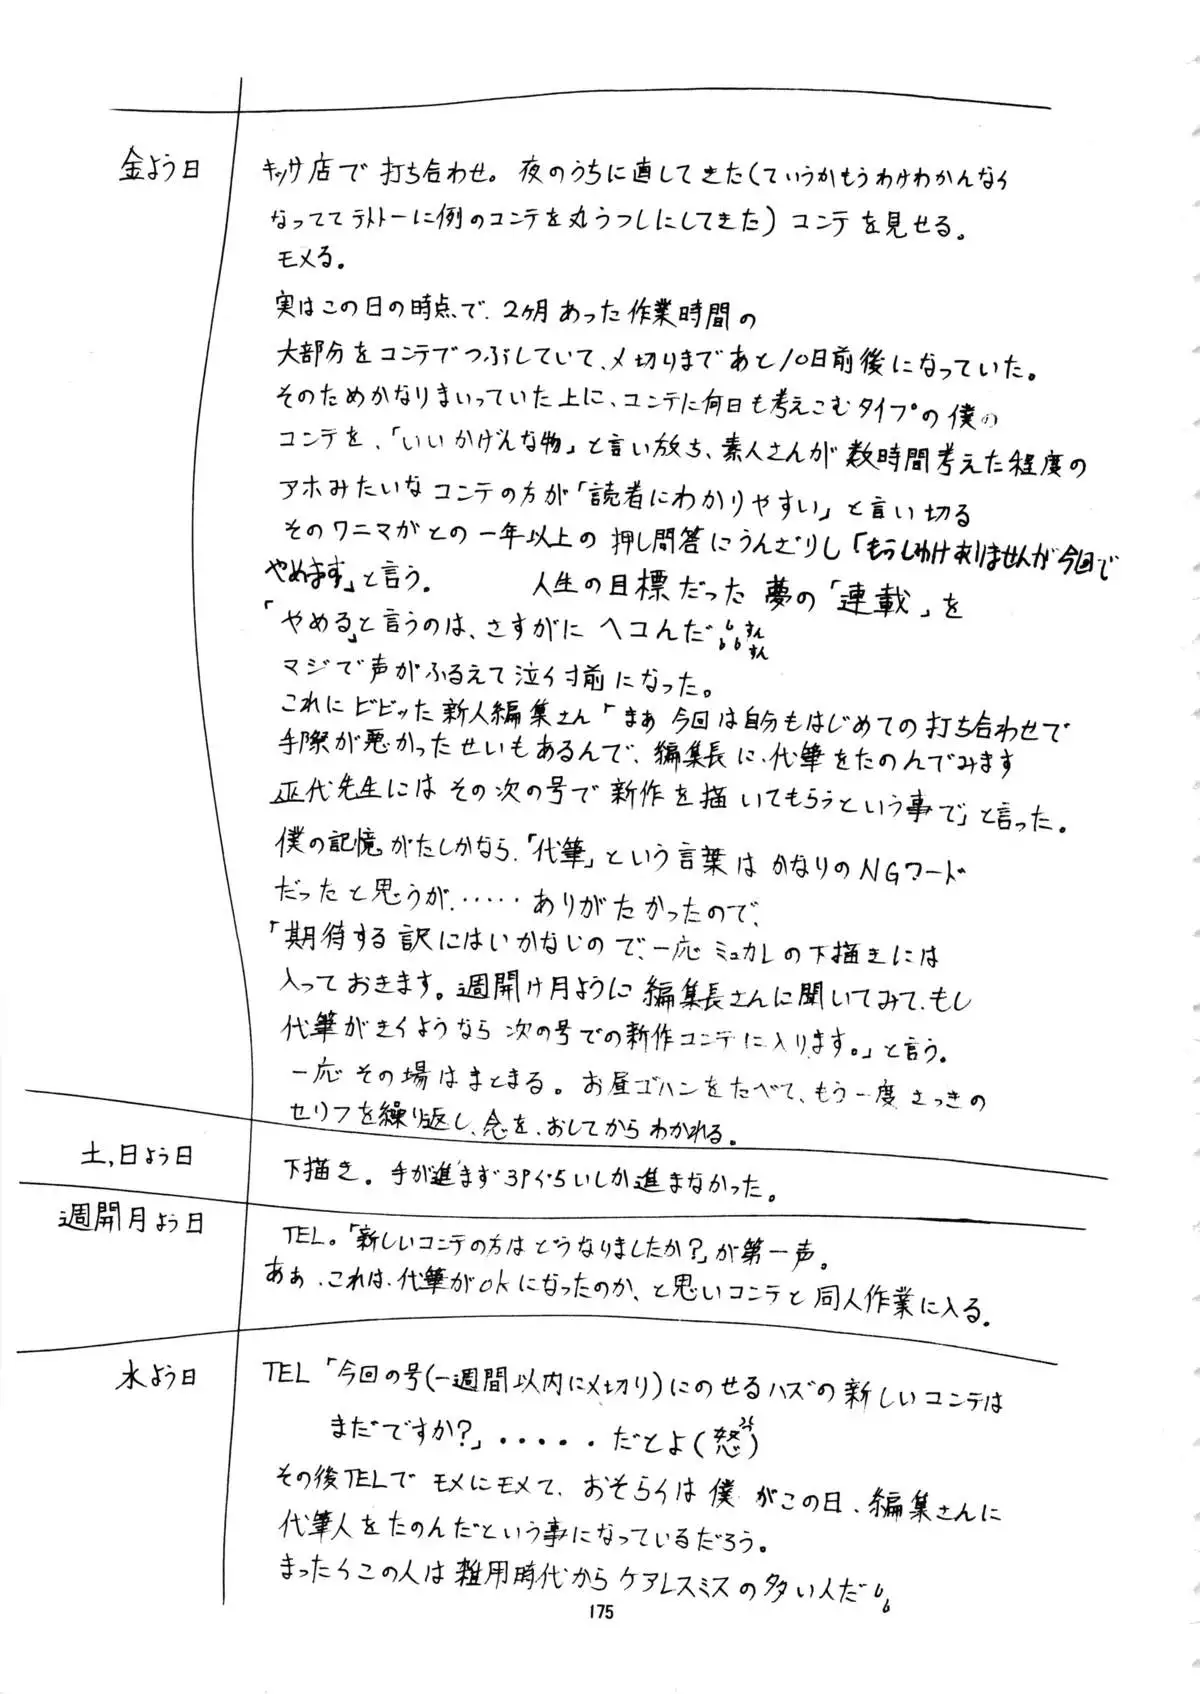 金よう日
キッサ店で打ち合わせ。夜のうちに直してきた(ていうかもうわけわかんなく
なっててテキトーに例のコンテを丸うつしにしてきた)コンテを見せる。
モメる。
実はこの日の時点で、2ヶ月あった作業時間の
大部分をコンテでつぶしていて、〆切りまであと10日前後になっていた。
そのためかなりまいっていた上に、コンテに何日も考えこむタイプの僕の
コンテを、「いいかげんな物」と言い放ち、素人さんが数時間考えた程度の
アホみたいなコンテの方が「読者にわかりやすい」と言い切る
そのワニマガとの一年以上の押し問答にうんざりし「もうしわけありませんが今回で
やめます」と言う。 人生の目標だった夢の「連載」を
「やめる」と言うのは、さすがにヘコんだ
マジで声がふるえて泣く寸前になった。
これにビビッた新人編集さん「まぁ今回は自分もはじめての打ち合わせで
手際が悪かったせいもあるんで、編集長に、代筆をたのんでみます
先生にはその次の号で新作を描いてもらうという事で」と言った。
僕の記憶がたしかなら、「代筆」という言葉はかなりのNGワード
だったと思うが、・・・・・ありがたかったので、
「期待する訳にはいかないので、一応ミュカレの下描きには
入っておきます。週開け月ように編集長さんに聞いてみて、もし
代筆がきくようなら次の号での新作コンテに入ります。」と言う。
一応その場はまとまる。お昼ゴハンをたべて、もう一度さっきの
セリフを繰り返し、念を、おしてからわかれる。
土,日よう日
下描き。手が進まず3Pぐらいしか進まなかった。
週開月よう日
TEL。「新しいコンテの方はどうなりましたか?」が第一声。
ああ、これは、代筆がokになったのか、と思いコンテと同人作業に入る。
水よう日
TEL「今回の号(一週間以内に〆切り)にのせるハズの新しいコンテは
まだですか?」・・・・・だとよ(怒)
その後TELでモメにモメて、おそらくは僕がこの日、編集さんに
代筆人をたのんだという事になっているだろう。
まったくこの人は雑用時代からケアレスミスの多い人だ
175